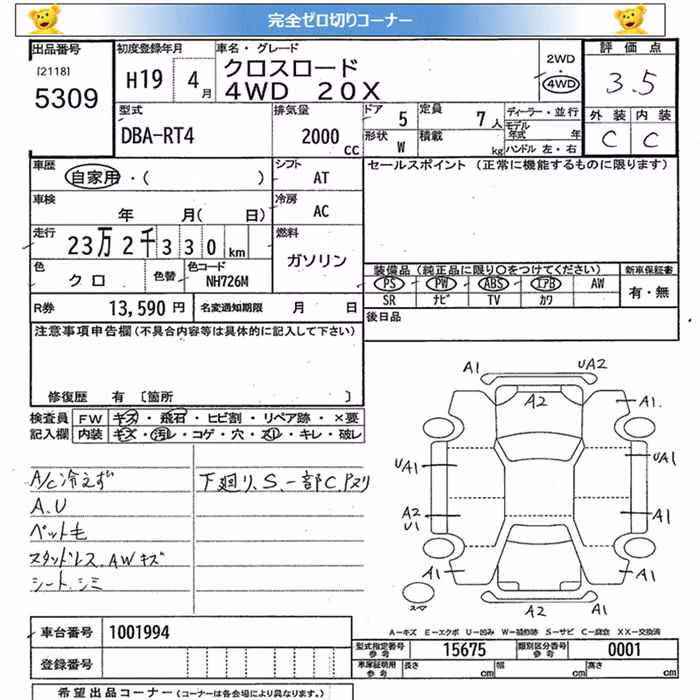 完全ゼロ切りコーナー
出品番号 初度登録年月 車名・グレード 評価点
[2118]
5309
H19 4月
クロスロード
4WD 20X
2WD
4WD
3.5
型式 排気量 ドア 5 定員 7人 ディーラー・並行 外装 内装
DBA-RT4 2000cc 形状 W 積載 kg モデル年式 年
ハンドル 左・右
C C
車歴 自家用・( ) シフト AT セールスポイント (正常に機能するものに限ります)
車検 年 月( 日) 冷房 AC
走行 23万2千330km 燃料 ガソリン
色 クロ 色替 色コード NH726M
装備品(純正品に限り○をつけてください) 新車保証書
PS PW ABS エアB AW 有・無
SR ナビ TV カワ
R券 13,590円 名変通知期限 月 日
後日品
注意事項申告欄(不具合内容等は具体的に記入して下さい)
修復歴 有 [箇所 ]
検査員 FW キズ・飛石・ヒビ割・リペア跡・×要
記入欄 内装 キズ・汚レ・コゲ・穴・スレ・キレ・破レ
A/C冷えず 下廻り、S、一部C、Pヌリ
A.U
ペット毛
スタッドレス、AWキズ
シート、シミ
A1 UA2
A2 A1
UA1 UA1
A2 A1
U1
A1 A1
A2 A1
スマ
車台番号 1001994
登録番号
A=キズ E=エクボ U=凹み W=補修跡 S=サビ C=腐食 XX=交換済
型式指定番号 参考 15675 類別区分番号 参考 0001
車庫証明用 参考 長さ cm 幅 cm 高さ cm
希望出品コーナー(コーナーは各会場により異なります。)